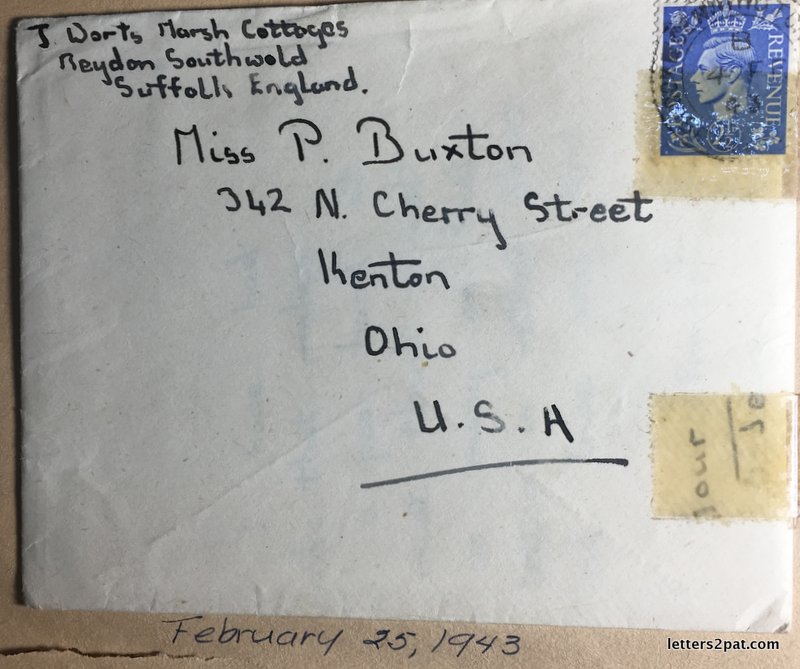 J Worts Marsh Cottages
Reydon Southwold
Suffolk England.
POSTAGE REVENUE
Miss P. Buxton
342 N. Cherry Street
Kenton
Ohio
U.S.A
February 25, 1943
letters2pat.com